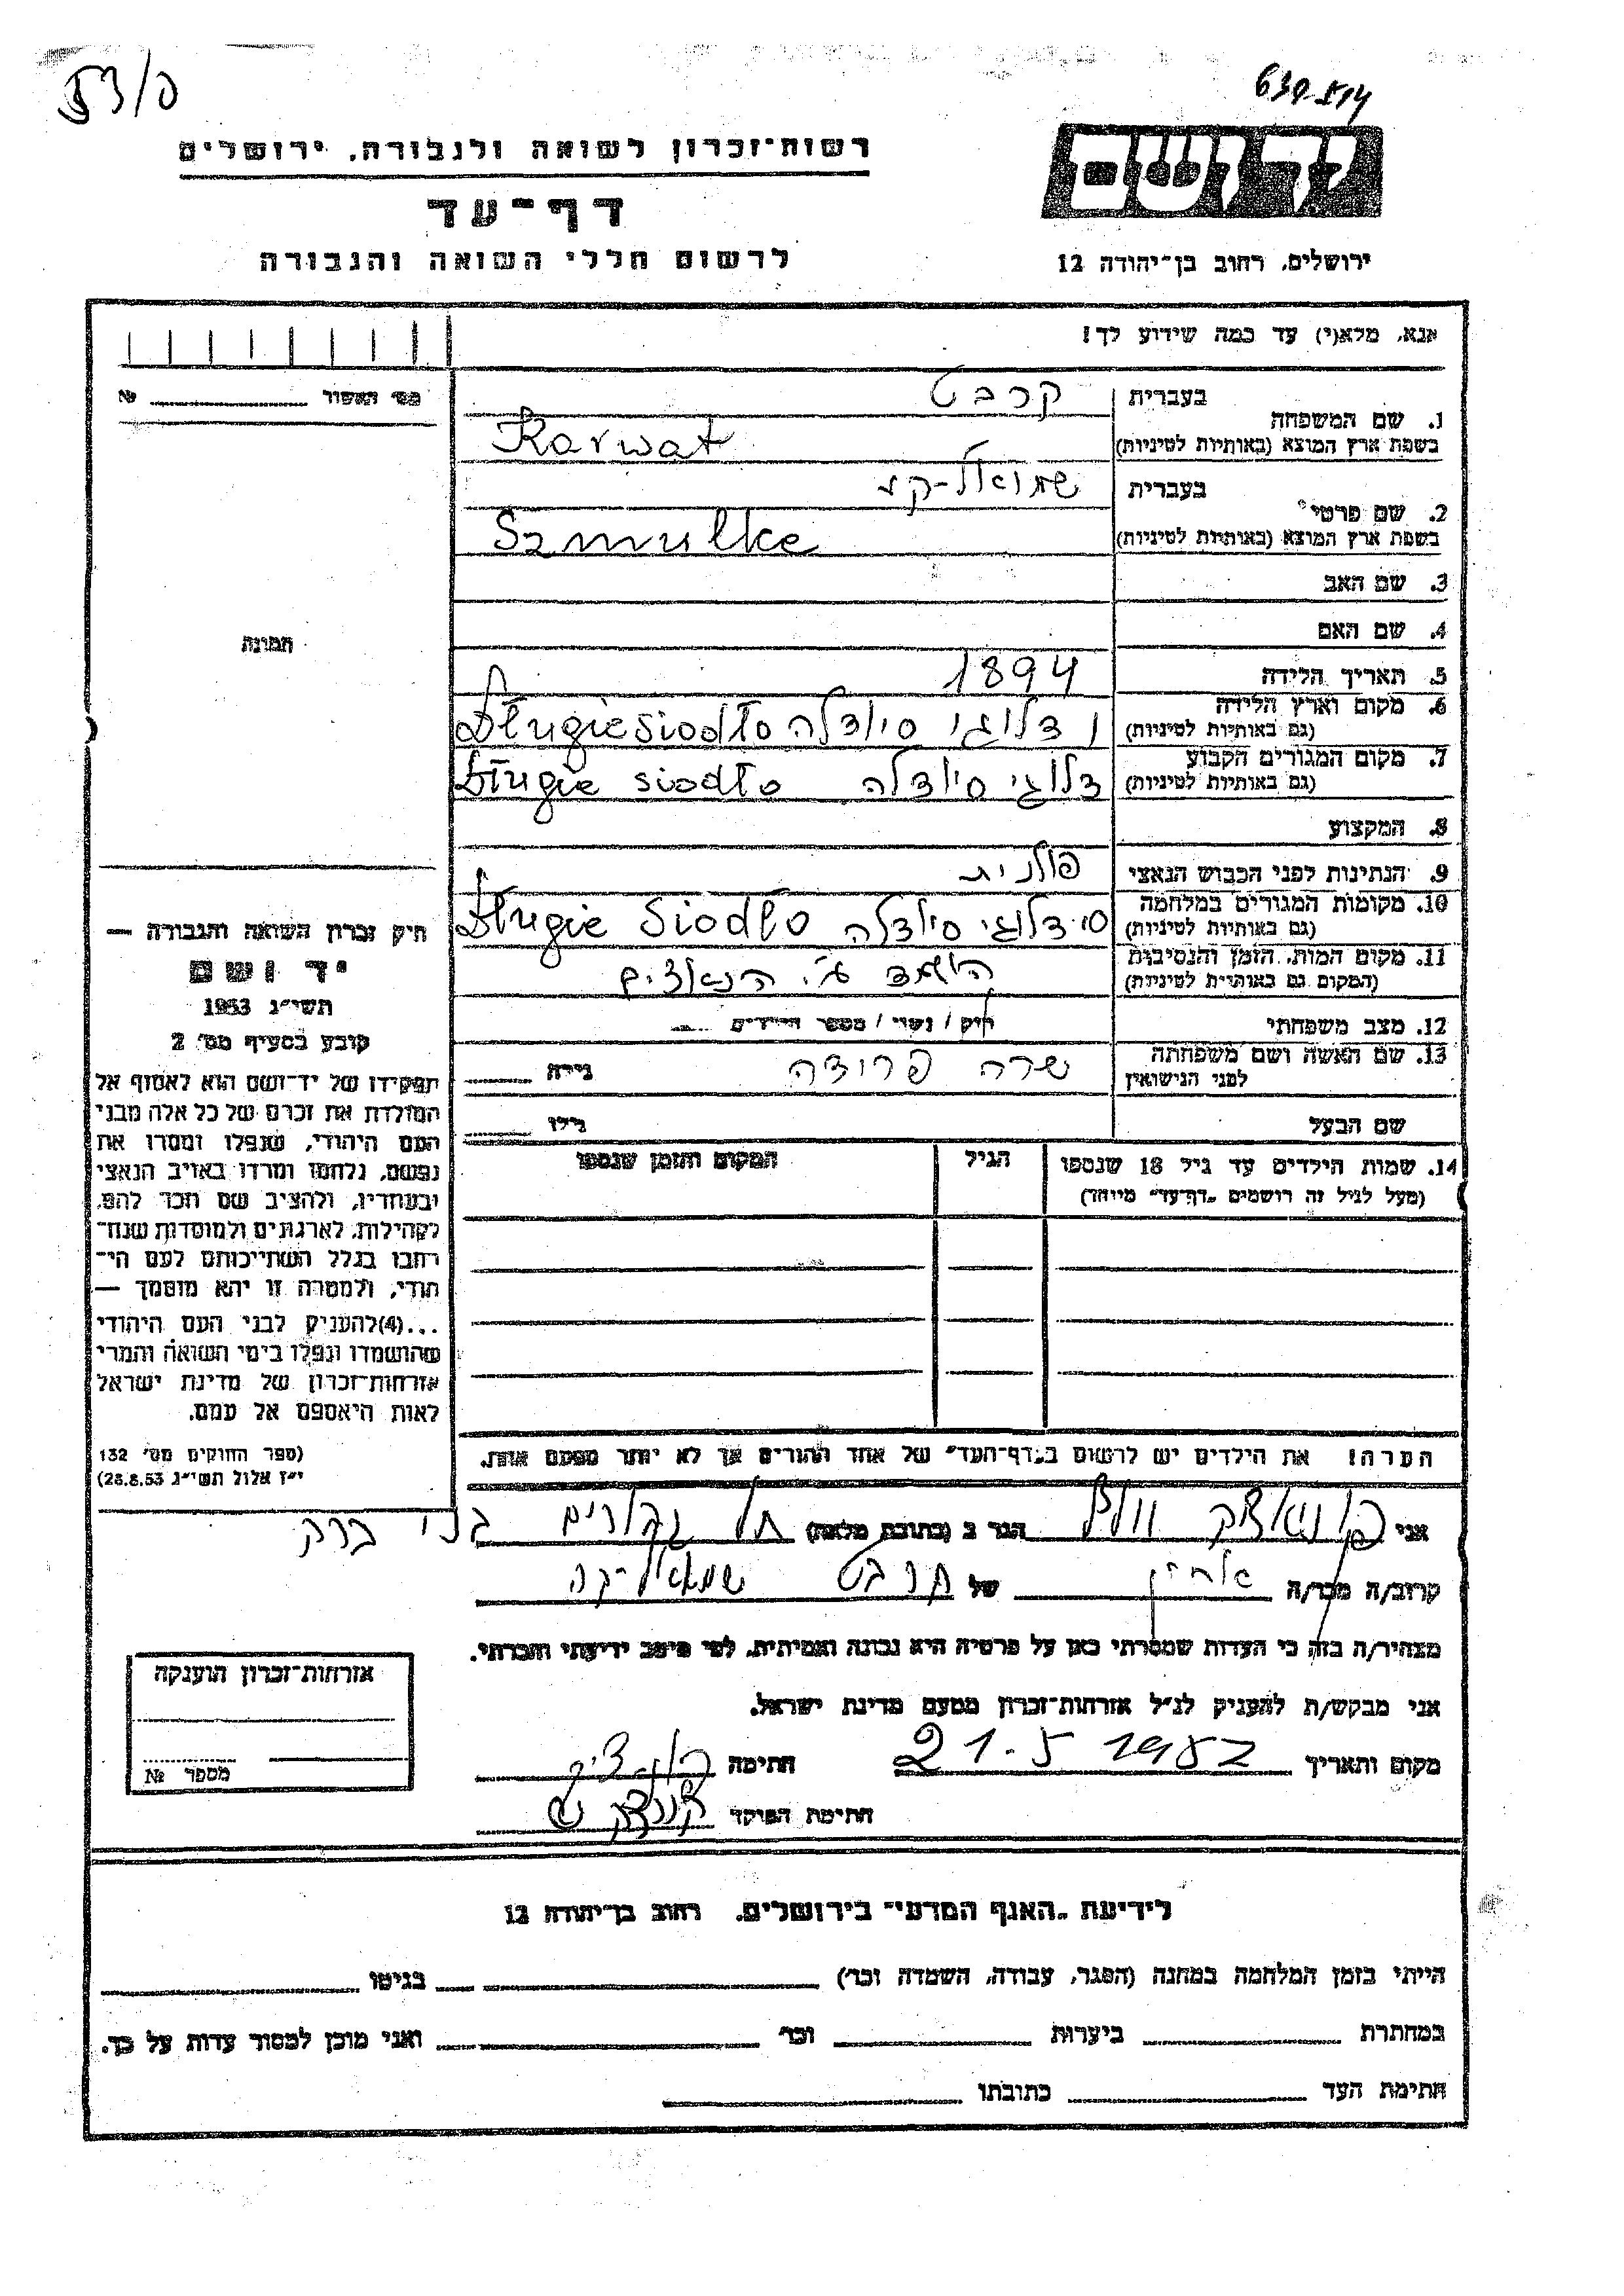 639514
ס/53
יד ושם
ירושלים, רחוב בן־יהודה 12
רשות־זכרון לשואה ולגבורה, ירושלים
דף־עד
לרשום חללי השואה והגבורה
אנא, מלא(י) עד כמה שידוע לך!
מס׳ האשור №
1. שם המשפחה בעברית קרבט
בשפת ארץ המוצא (באותיות לטיניות) Karwat
2. שם פרטי בעברית שמואל-קה
בשפת ארץ המוצא (באותיות לטיניות) Szmulke
3. שם האב
4. שם האם
5. תאריך הלידה 1894
6. מקום וארץ הלידה
(גם באותיות לטיניות) דלוגי סיודלה Długiesiodło
7. מקום המגורים הקבוע
(גם באותיות לטיניות) דלוגי סיודלה Długie siodło
8. המקצוע
9. הנתינות לפני הכבוש הנאצי פולנית
10. מקומות המגורים במלחמה
(גם באותיות לטיניות) דלוגי סיודלה Długie Siodło
11. מקום המות, הזמן והנסיבות
(המקום גם באותיות לטיניות) הושמד ע״י הנאצים
12. מצב משפחתי רווק / נשוי / מספר הילדים
13. שם האשה ושם משפחתה
לפני הנישואין שרה פרודה גילה
שם הבעל גילו
14. שמות הילדים עד גיל 18 שנספו הגיל המקום והזמן שנספו
(מעל לגיל זה רושמים „דף־עד״ מיוחד)
הערה! את הילדים יש לרשום ב„דף־העד״ של אחד ההורים אך לא יותר מפעם אחת.
תמונה
חיק זכרון השואה והגבורה —
יד ושם
תשי״ג 1953
קובע בסעיף מס׳ 2
תפקידו של יד־ושם הוא לאסוף אל
המולדת את זכרם של כל אלה מבני
העם היהודי, שנפלו ומסרו את
נפשם, נלחמו ומרדו באויב הנאצי
ובעוזריו, ולהציב שם וזכר להם,
לקהילות, לארגונים ולמוסדות שנח־
רבו בגלל השתייכותם לעם הי־
הודי, ולמטרה זו יהא מוסמך —
...(4)להעניק לבני העם היהודי
שהושמדו ונפלו בימי השואה והמרי
אזרחות־זכרון של מדינת ישראל
לאות היאספם אל עמם.
(ספר החוקים מס׳ 132
י״ז אלול תשי״ג 28.8.53)
אני הגר ב (כתובת מלאה) בני ברק
קרוב/ה מכר/ה של שמואל-קה
מצהיר/ה בזה כי העדות שמסרתי כאן על פרטיה היא נכונה ואמיתית, לפי מיטב ידיעתי והכרתי.
אני מבקש/ת להעניק לנ״ל אזרחות־זכרון מטעם מדינת ישראל.
מקום ותאריך 21.5 1957 חתימה
חתימת הפוקד
אזרחות־זכרון הוענקה
מספר №
לידיעת „האגף המדעי״ בירושלים, רחוב בן־יהודה 12
הייתי בזמן המלחמה במחנה (הסגר, עבודה, השמדה וכו׳) בגיטו
במחתרת ביערות וכו׳ ואני מוכן למסור עדות על כך.
חתימת העד כתובתו